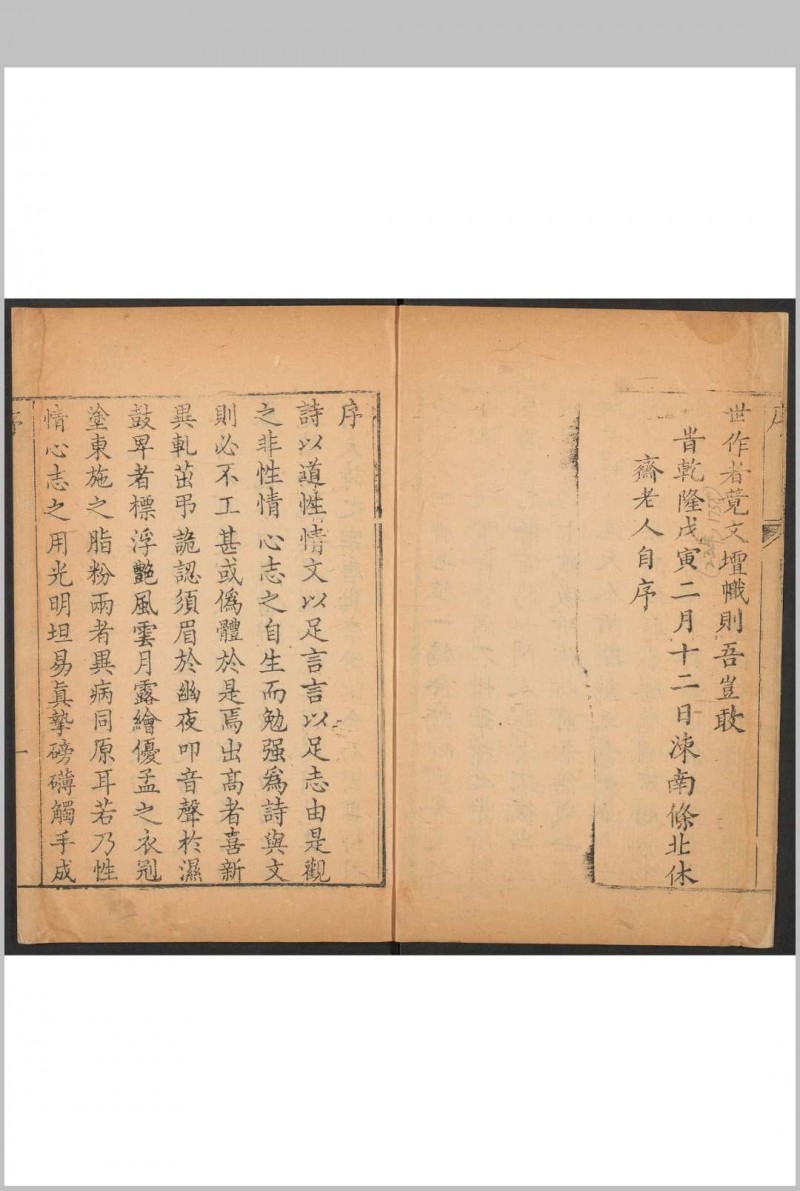 世作者競文壇幟則吾豈敢
旹乾隆戊寅二月十二日涑南條北休
齋老人自序
序
詩以道性情文以足言言以足志由是觀
之非性情心志之自生而勉强爲詩與文
則必不工甚或僞體於是焉出高者喜新
異軋茁弔詭認須眉於幽夜叩音聲於濕
鼓卑者標浮艷風雲月露繪優孟之衣冠
塗東施之脂粉兩者異病同原耳若乃性
情心志之用光明坦易眞摯磅礴觸手成
序
一